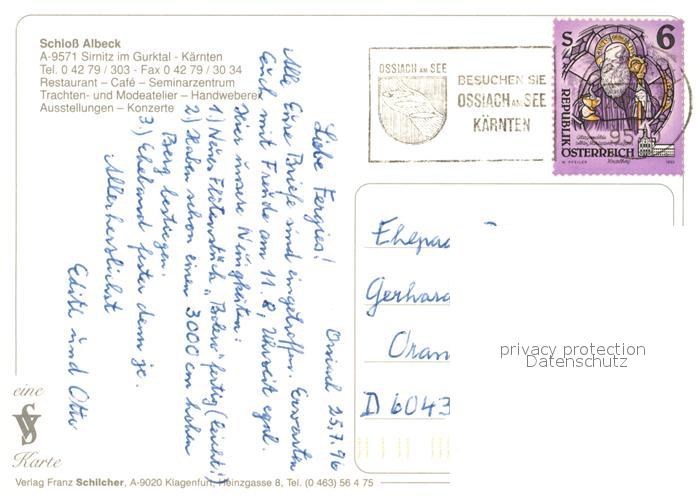 Schloß Albeck
A-9571 Sirnitz im Gurktal - Kärnten
Tel. 0 42 79 / 303 - Fax 0 42 79 / 30 34
Restaurant – Café – Seminarzentrum
Trachten- und Modeatelier – Handweberei
Ausstellungen – Konzerte
OSSIACH AM SEE
BESUCHEN SIE
OSSIACH AM SEE
KÄRNTEN
S 6
REPUBLIK
ÖSTERREICH
Ossiach 25.7.96
Liebe Fergies!
Alle Eure Briefe sind eingetroffen. Erwarten
Euch mit Freude am 11.8, Uhrzeit egal.
Hier unsere Neuigkeiten:
1) Neues Flötenstück "Bolero" fertig (leicht!)
2) Haben schon einen 3000 cm hohen
Berg bestiegen.
3) Eheband fester denn je.
Allerherzlichst
Edith und Otto
Ehepaa
Gerhard
Oran
D 6043
privacy protection
Datenschutz
eine
VS
Karte
Verlag Franz Schilcher, A-9020 Klagenfurt, Heinzgasse 8, Tel. (0 463) 56 4 75